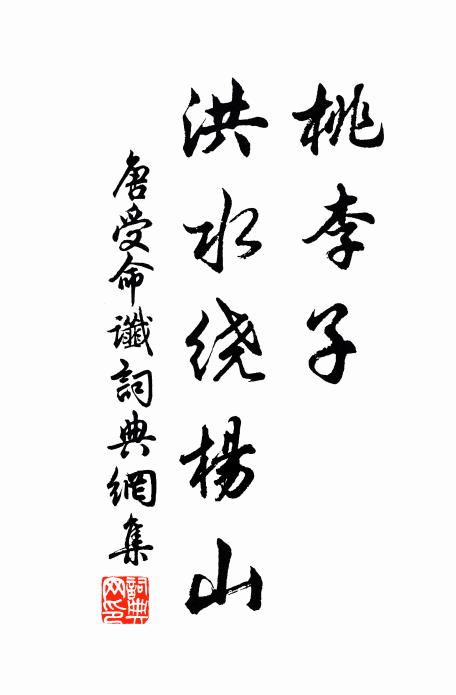 桃李子
洪水绕楊山
唐受命讖詞典網集
詞典网印